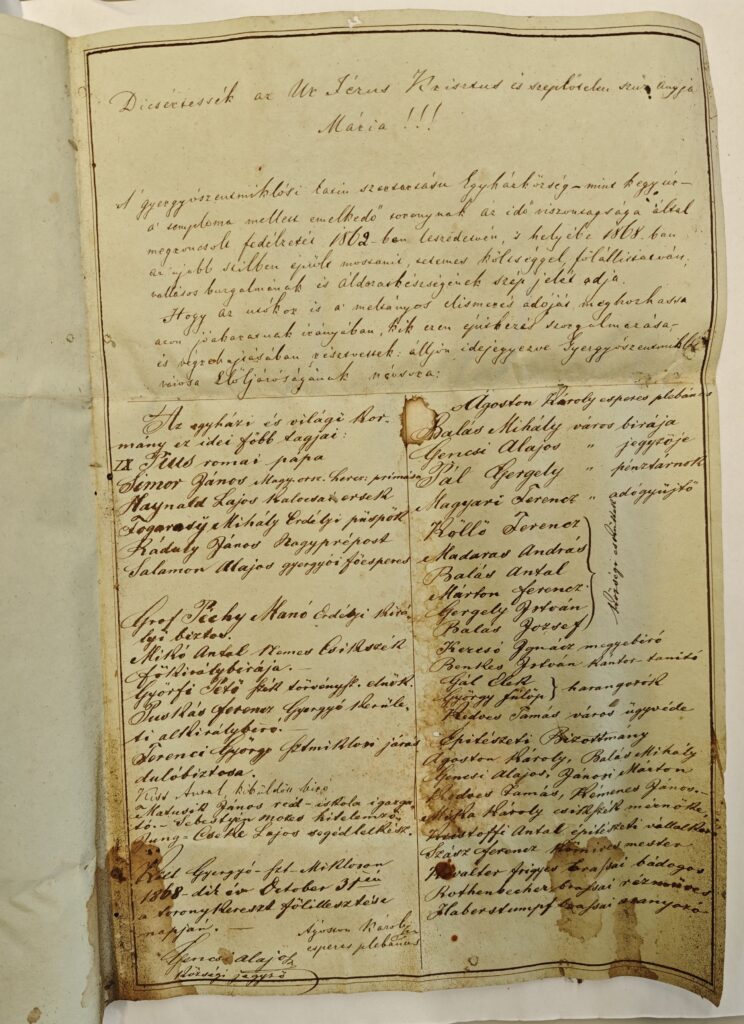 Dicsértessék az Úr Jézus Krisztus és szeplőtelen szűz anyja
Mária !!!
A' gyergyószentmiklósi latin szertartásu Egyházközség – mint kegyúr –
a' temploma mellett emelkedő toronynak az idő viszontagsága által
megroncsolt fedélzetét 1862-ben leszedetvén, 's helyébe 1868-ban
az ujabb stilben épült mostanit, tetemes költséggel fölállittatván,
vallásos buzgalmának és áldozatkészségének szép jelét adja.
Hogy az utókor is a' méltányos elismerés adóját meghozhassa
azon jóbaratinak irányában, kik ezen épitkezés szorgalmazása-
és végrehajtásában résztvettek: álljon idejegyezve Gyergyószentmiklós
városa Elöljáróságának névsora:
Az egyházi és világi kor-
mány ez idei főbb tagjai:
IX Pius romai pápa
Simor János Magy. orsz. hercz. primása
Haynald Lajos kalocsai érsek
Fogarasÿ Mihály Erdélyi püspök
Ráduly János Nagyprépost
Salamon Alajos gyergyói főesperes
Gróf Péchy Manó Erdélyi kirá-
lyi biztos.
Mikó Antal Nemes Csikszék
főkirálybirája. –
Györfi Pető szék törvényszk. elnök.
Puskás Ferencz Gyergyó kerüle-
ti alkirálybiró. –
Ferenczi György Sztmiklósi járás
dulóbiztosa.
Antal, kiküldön biró
Matusek János reál-iskola igazga-
tó. – Sebestyén Mózes hitelemző.
Cseke Lajos segédlelkész.
Kelt Gyergyó-Szt-Miklóson
1868-dik év October 31-én
a' toronykereszt fölillesztése
napján. –
Ágoston Károly
esperes plébános
Gencsi Alajos
községi jegyző
Ágoston Károly esperes plébános
Balás Mihály város birája
Gencsi Alajos " jegyzője
Pál Gergely " pénztárnok
Magyari Ferencz " adógyüjtő
Köllő Ferencz
Madaras András
Balás Antal
Márton Ferencz
Gergely István
Balás József
községi esküdtek
Kercsó Ignácz megyebiró
Benkes István kántor tanitó
Gál Elek
György Fülöp } harangozók
Kedves Tamás város ügyvéde
Épitészeti Bizottmány
Ágoston Károly, Balás Mihály
Gencsi Alajos, Jánosi Márton
Kedves Tamás, Kémenes János. –
Károly csikszék mérnöke,
Kristoffi Antal épitészeti vállalkozó
Szász Ferencz Kömives mester
frigyes brassai bádogos
Rothenbecher brassai rézmüves
Haberstumpf brassai aranyozó